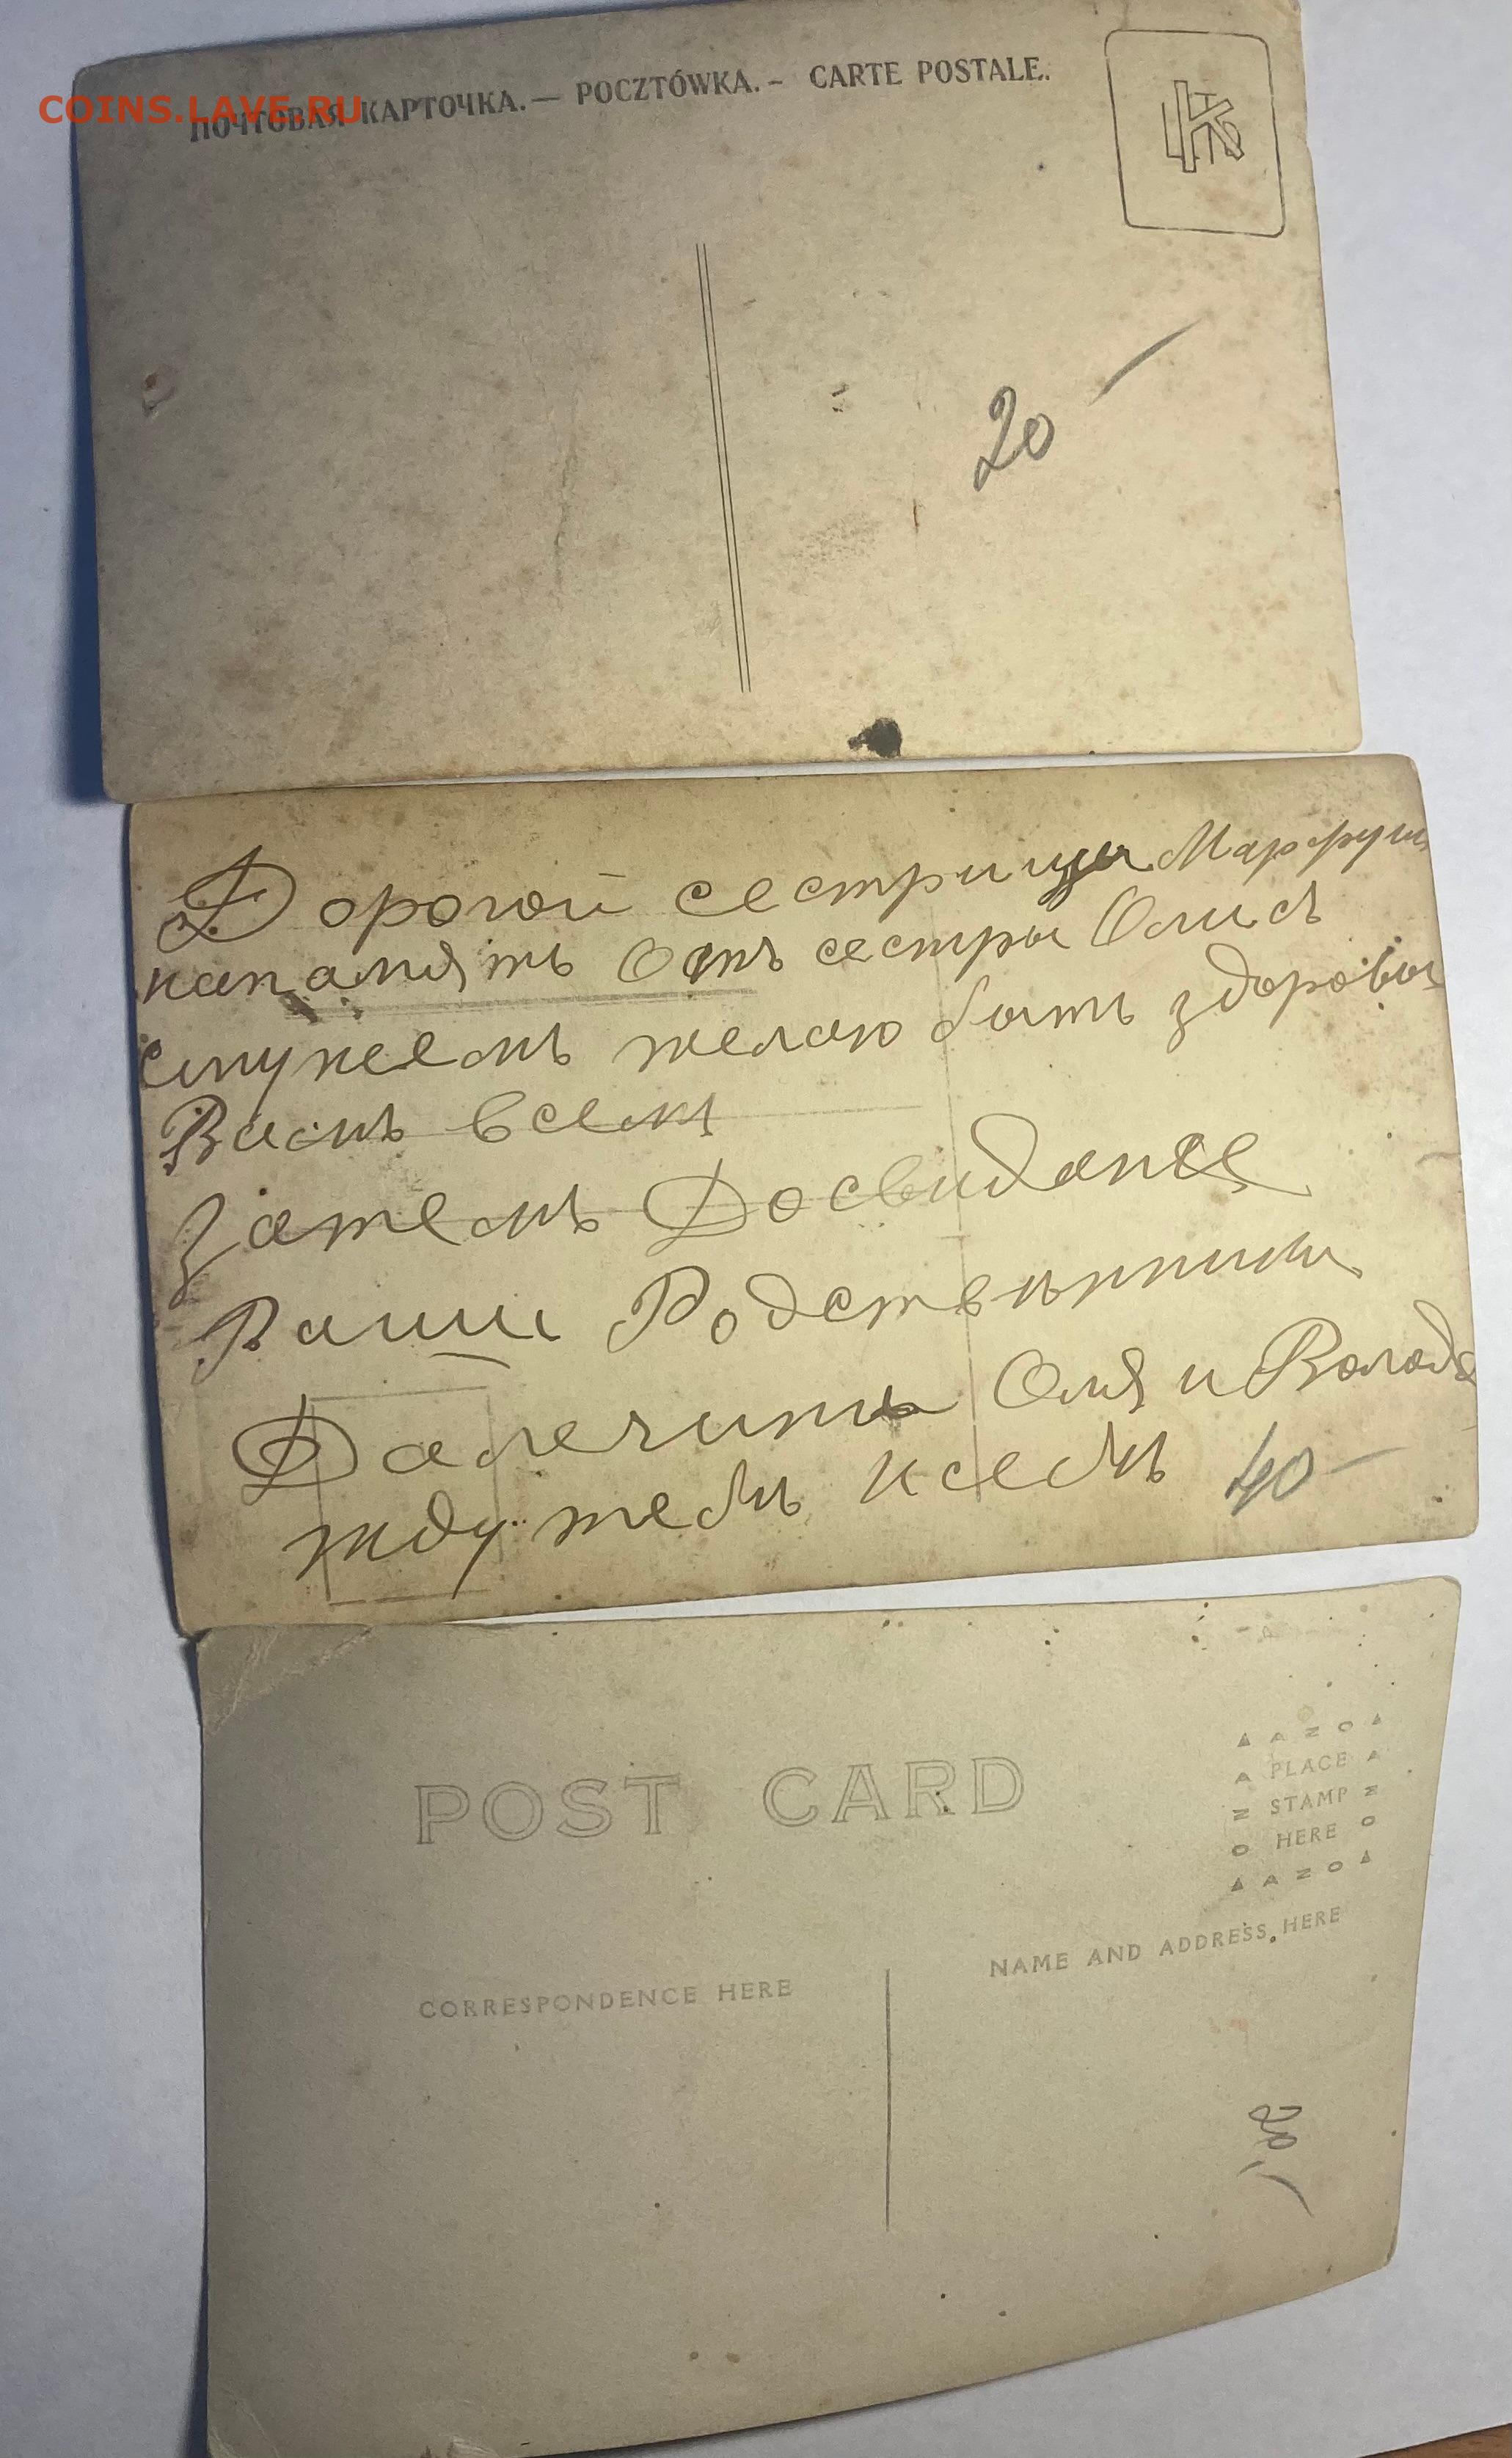 COINS.LAVE.RU
ПОЧТОВАЯ КАРТОЧКА. — POCZTÓWKA. – CARTE POSTALE.
20 —
Дорогой сестрицы
напамять Отъ сестры Оли съ
желаю быть здоровы
Вамъ всемъ
Затемъ Досвиданее
Ваши Родствънники
Оля и Володя
жду тебъ
40 —
POST CARD
▲ A Z O ▲
A PLACE A
Z STAMP Z
O HERE O
▲ A Z O ▲
CORRESPONDENCE HERE
NAME AND ADDRESS HERE
20,—